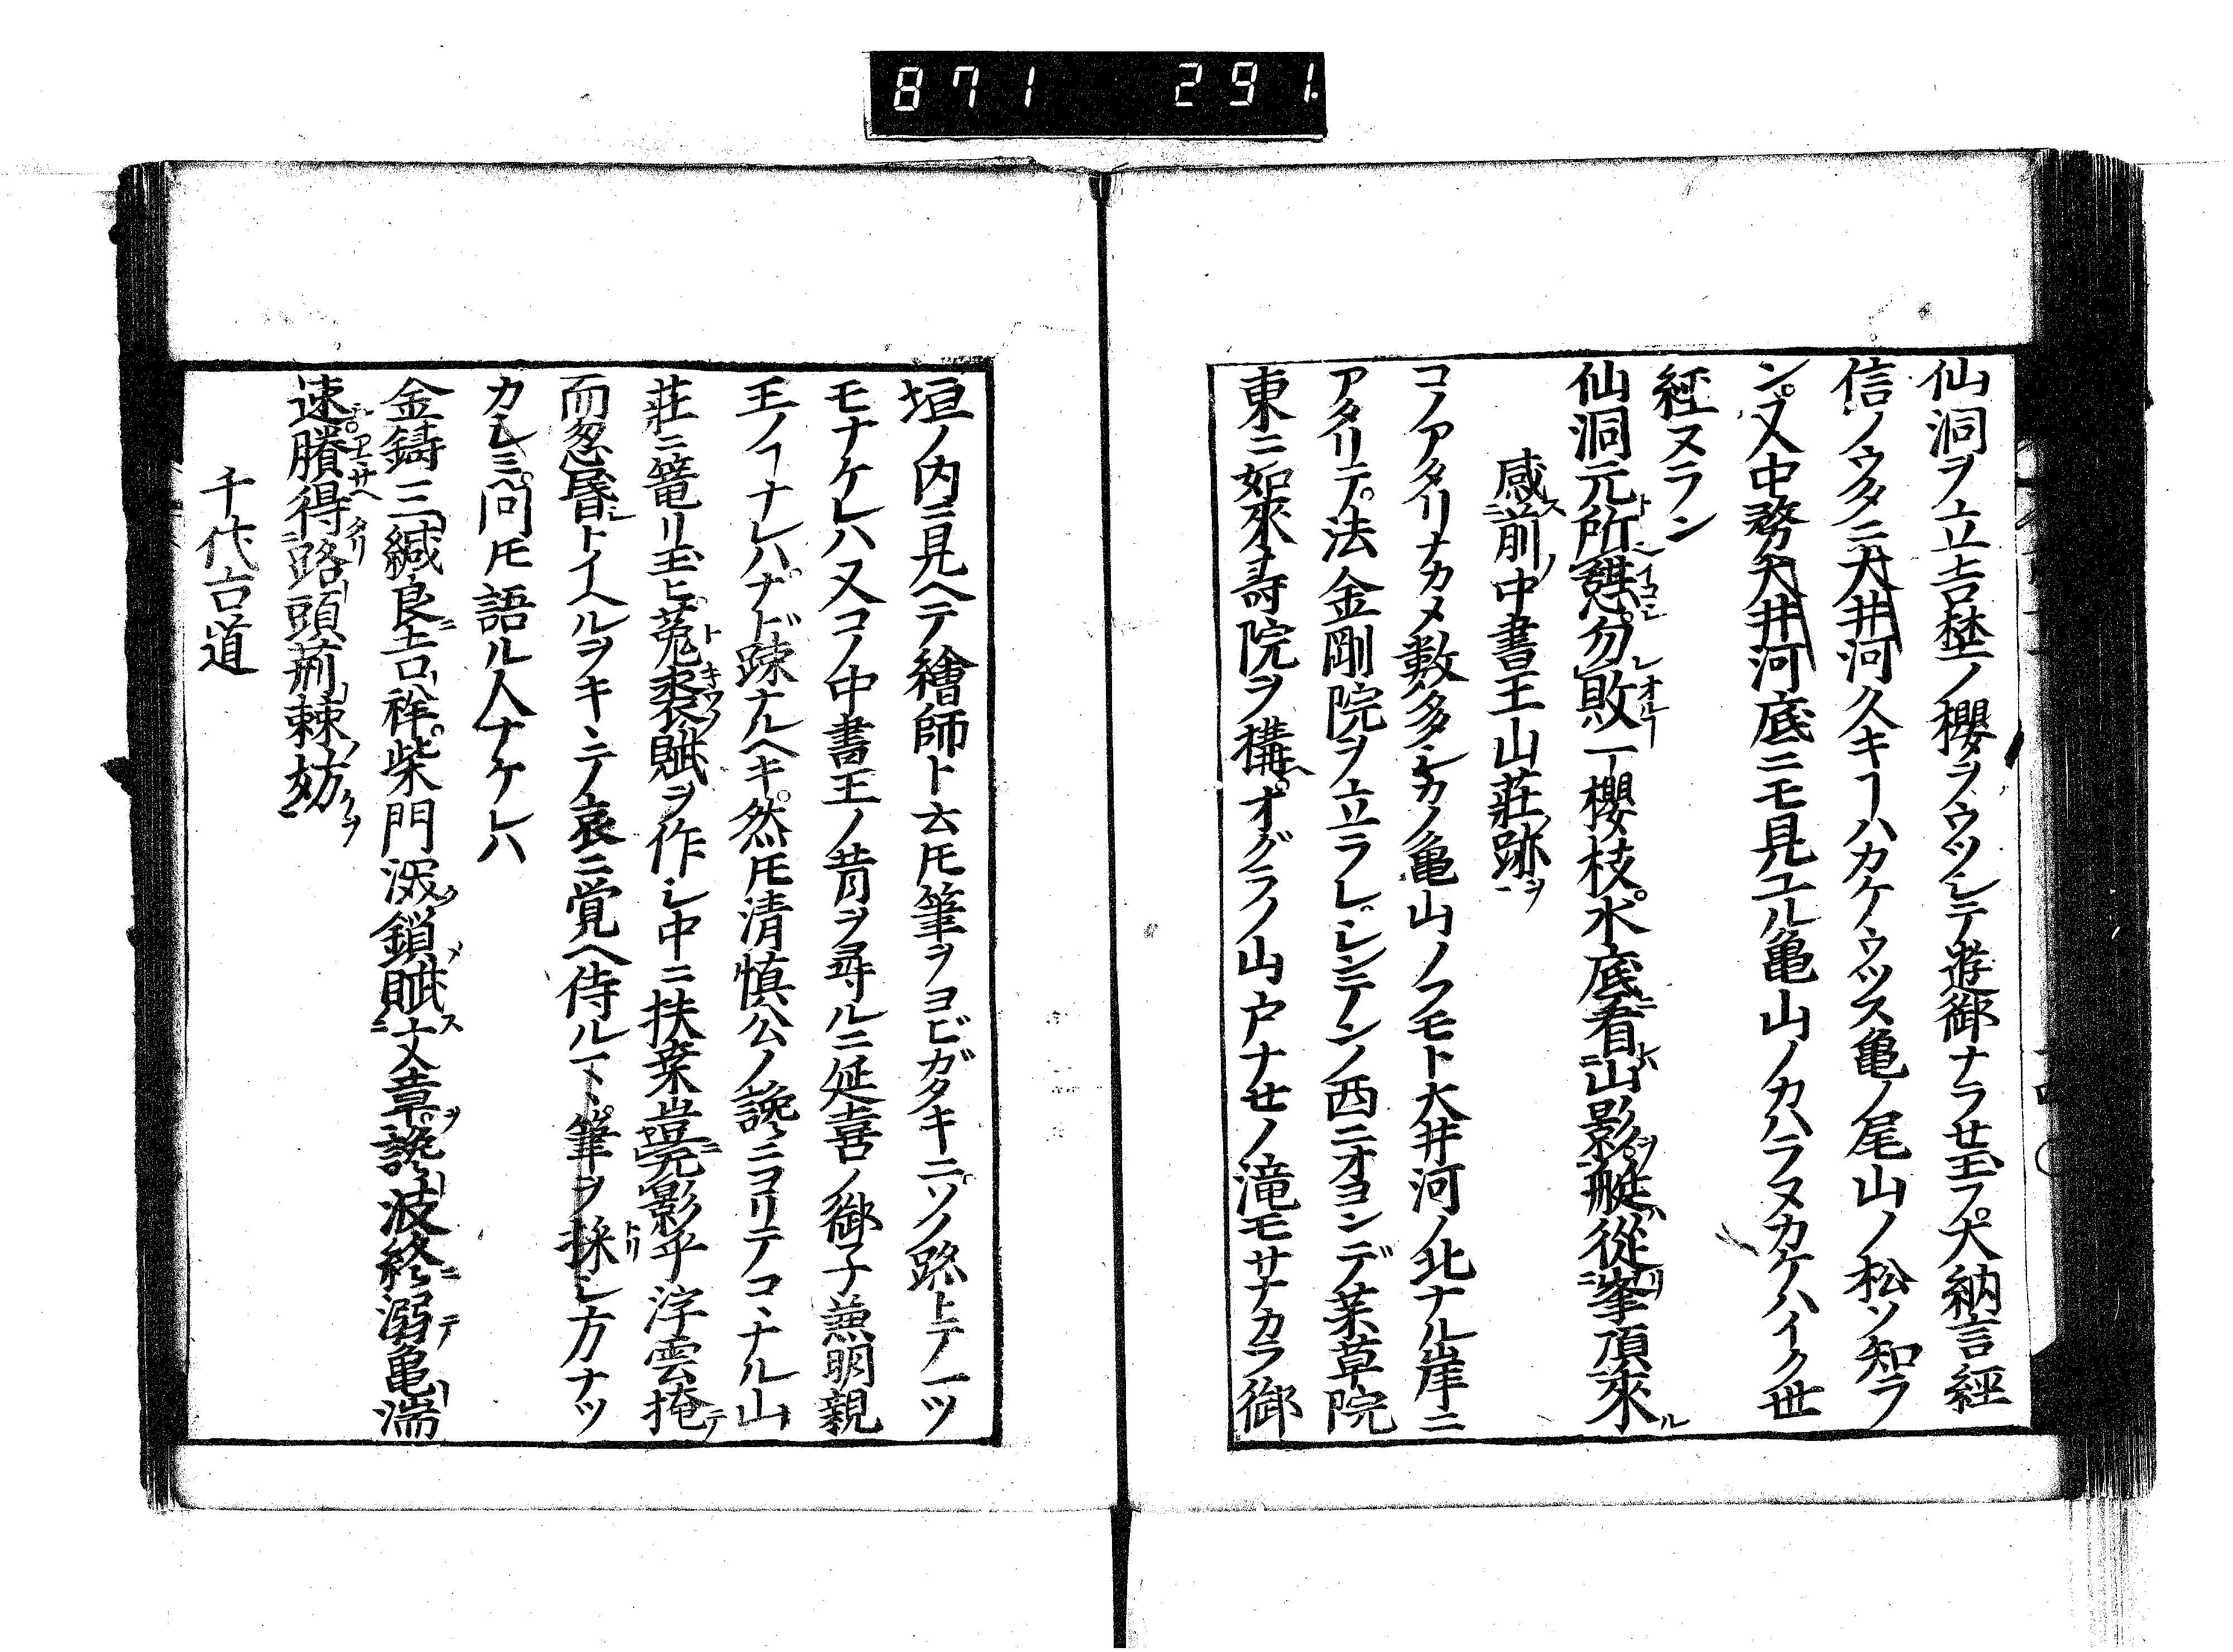 871 291.
仙洞ヲ立吉埜ノ櫻ヲウツシテ遊御ナラせ玉フ大納言經
信ノウタニ大井河久キヿハカケウツス亀ノ尾山ノ松ソ知ラ
ン又中務大井河底ニモ見エル亀山ノカハラヌカケハイク世
経ヌラン
仙洞元所憩勿敗一櫻枝水底看山影艇從峯頂來
感前中書王山荘跡
コノアタリナカメ數多シカノ亀山ノフモト大井河ノ北ナル岸ニ
アタリテ法金剛院ヲ立ラレシンテンノ西ニオヨンデ薬草院
東ニ如來壽院ヲ構ヘオグラノ山戸ナせノ滝モサナカラ御
垣ノ内ニ見ヘテ繪師ト云𪜈筆ヲヨビガタキニソノ跡トテ一ツ
モナケレハ又コノ中書王ノ昔ヲ尋ルニ延喜ノ御子兼明親
王ノヿナレハナド疎ナルヘキ然𪜈清慎公ノ讒ニコリテコヽナル山
荘ニ篭リ玉ヒ菟裘賦ヲ作シ中ニ扶桒豈旡影乎浮雲掩
而忽昏トイヘルヲキヽテノ哀ニ覚ヘ侍ルマヽ筆ヲ採シ方ナツ
カシミ問𪜈語ル人ナケレハ
金鋳三緘良吉祥柴門深鎖賦文章讒波終溺亀湍
速賸得路頭荊棘妨
千代古道